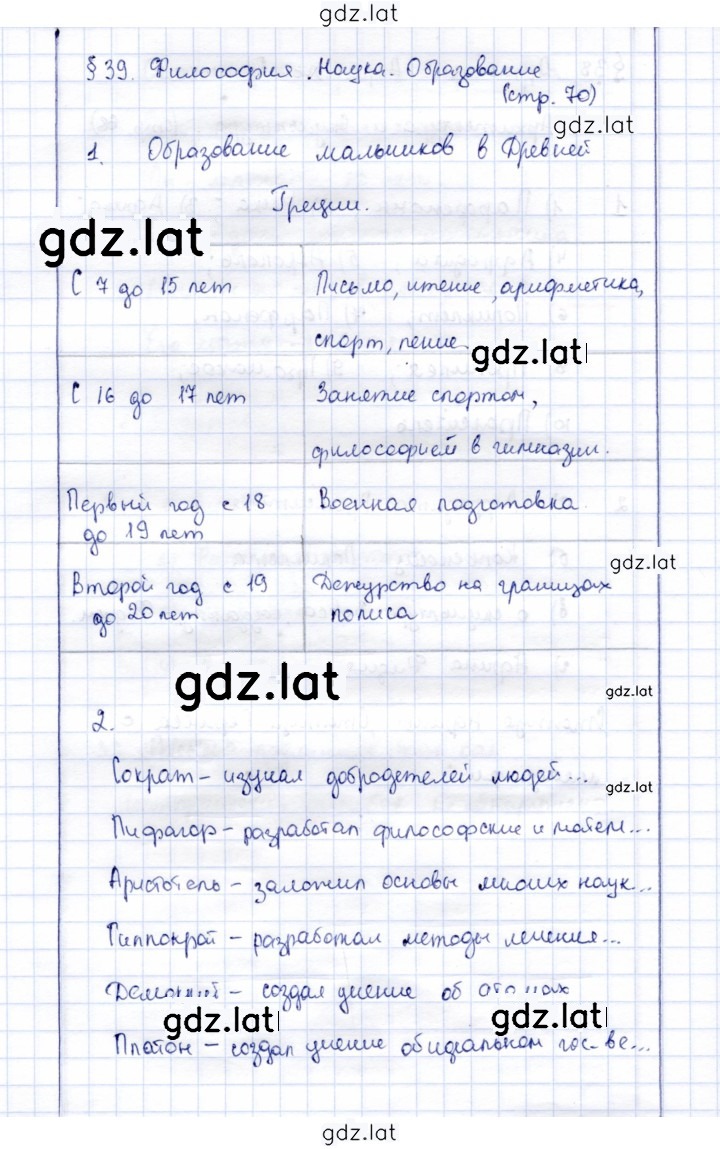 gdz.lat
§ 39. Философия. Наука. Образование
(стр. 70)
gdz.lat
1. Образование мальчиков в Древней
Греции.
gdz.lat
С 7 до 15 лет
Письмо, чтение, арифметика,
спорт, пение
gdz.lat
С 16 до 17 лет
Занятие спортом,
философией в гимназии.
Первый год с 18
до 19 лет
Военная подготовка
gdz.lat
Второй год с 19
до 20 лет
Дежурство на границах
полиса
gdz.lat
gdz.lat
2.
Сократ - изучал добродетелей людей...
gdz.lat
Пифагор - разработал философские и матем...
Аристотель - заложил основы многих наук...
Гиппократ - разработал методы лечения...
Демокрит - создал учение об атомах
gdz.lat
gdz.lat
Платон - создал учение об идеальном гос-ве...
gdz.lat